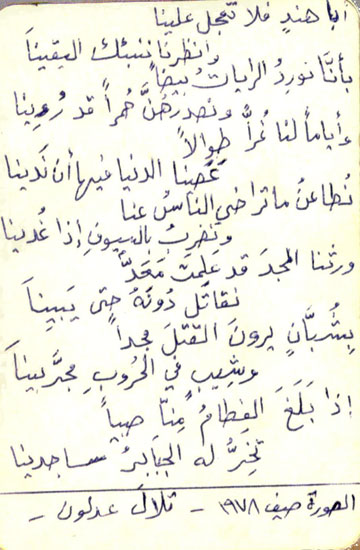 أبا هندٍ فلا تعجل علينا
وانظرنا ننبئك اليقينا
بأنّا نوردُ الراياتُ بيضاً
ونصدرهُنَّ حُمراً قد رُوِينا
وأياماً لنا غُرّاً طوالاً
عَصَينا الدنيا فيها أن نَدينا
نُطاعنُ ما تراخى الناسُ عنا
ونضربُ بالسيوفِ إذا غُدينا
ورثنا المجدَ قد علِمَت مَعَدٌّ
نقاتل دُونَهُ حتى يَبينا
بِشُبّانٍ يرونَ القتلَ مجداً
وشِيبٍ في الحُروبِ مجرَّبينا
إذا بَلَغَ الفِطامُ مِنّا صبياً
تخِرُّ له الجبابرُ ساجدينا
الصورة صيف ١٩٧٨ - تلال عدلون -